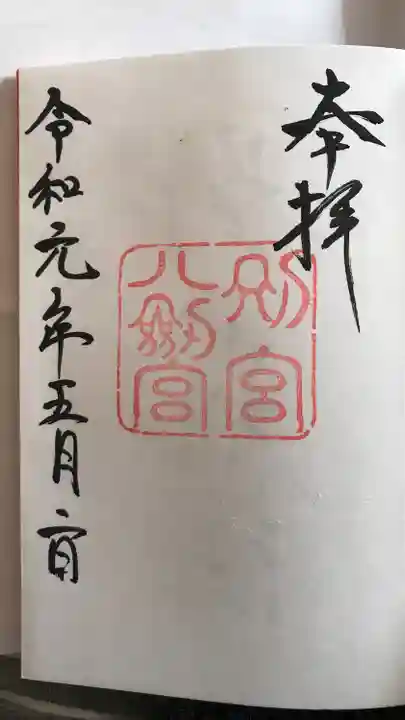 奉拝
別宮
八剱宮
令和元年五月二日